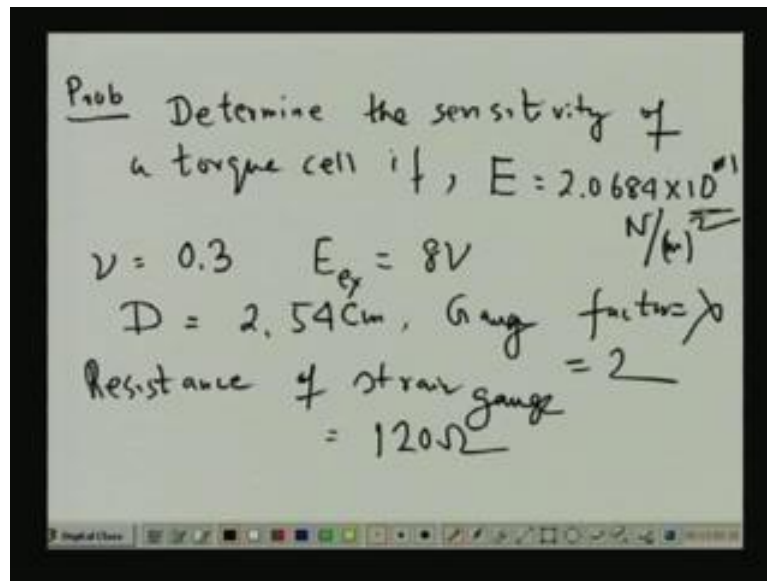 Prob Determine the sensitivity of
a torque cell if, E = 2.0684×10¹¹
N/(m)²
ν = 0.3 E_ex = 8V
D = 2.54 Cm, Gaug factor = λ
= 2
Resistance of strain gauge
= 120Ω